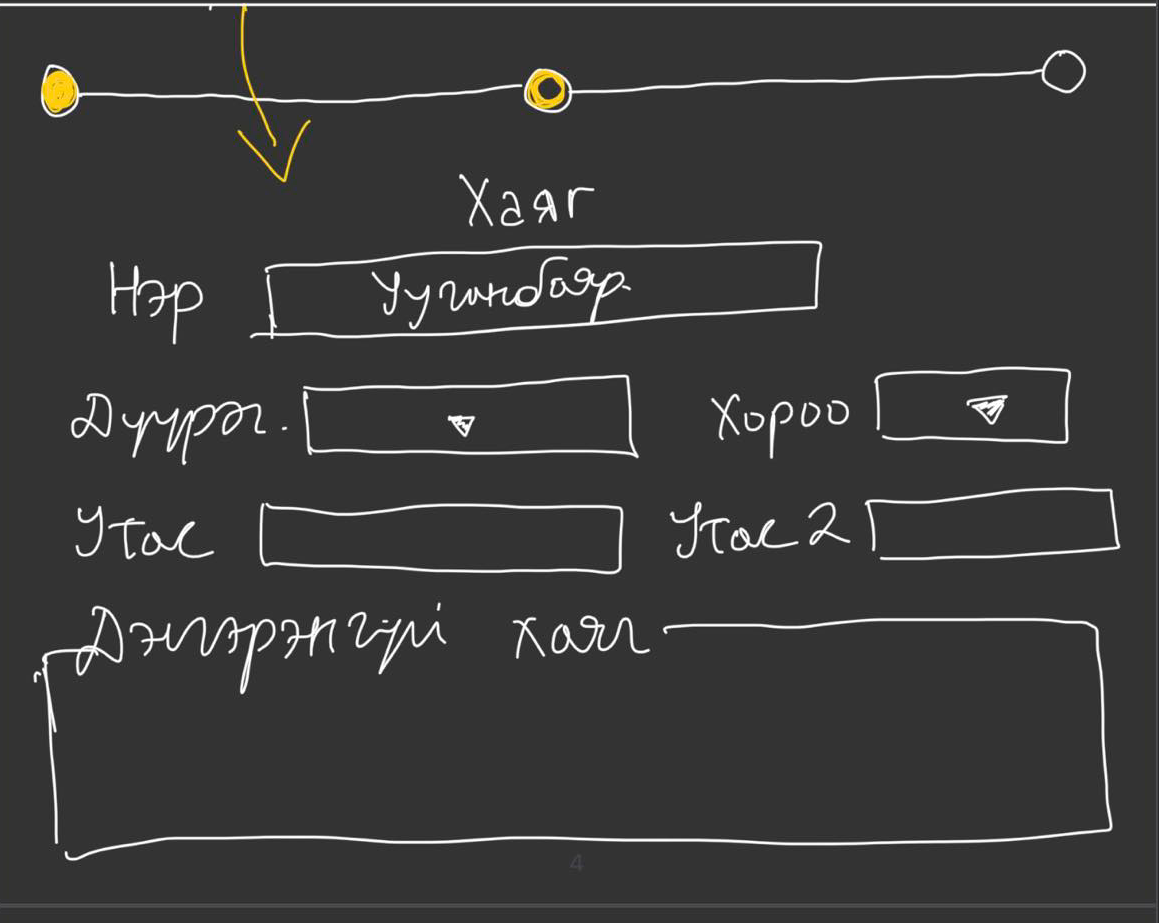 Хаяг
Нэр Ууганбаяр
Дүүрэг. Хороо
Утас Утас 2
Дэлгэрэнгүй хаяг
4